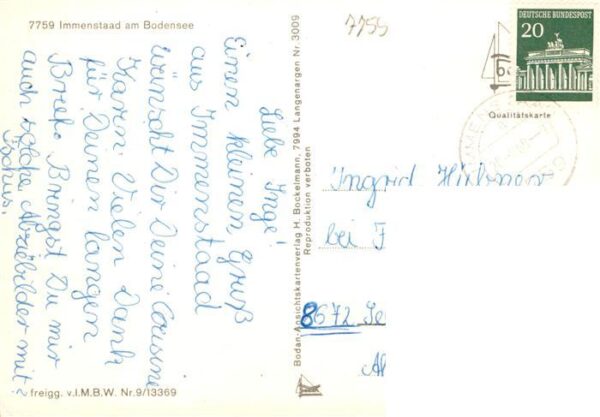 7759 Immenstaad am Bodensee
Liebe Inge!
Einen kleinen Gruß
aus Immenstaad
wünscht Dir Deine Cousine
Karin. Vielen Dank
für Deinen langen
Brief. Bringst Du mir
auch solche Abziebilder mit?
Tschus.
freigg. v.I.M.B.W. Nr.9/13369
Bodan-Ansichtskartenverlag H. Bockelmann, 7994 Langenargen Nr. 3009
Reproduktion verboten
7755
DEUTSCHE BUNDESPOST
20
Qualitätskarte
Ingrid Hübner
bei F
8672 Se